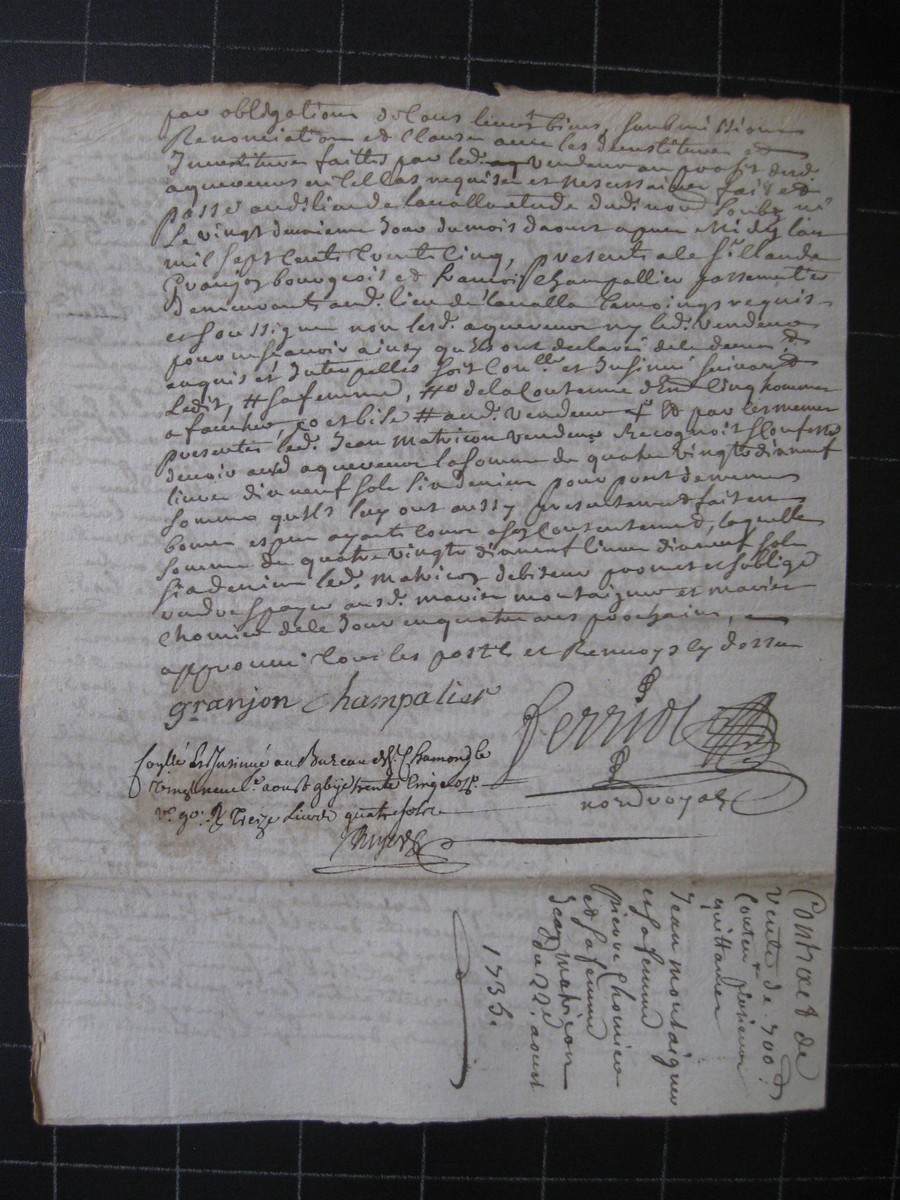 par obligations de tous leurs biens, submissions
Renonciations et clauses avec les devestitures et
Investitures faittes par led. vendeur au profit desd.
aquereurs en tel cas requises et necessaires fait et
passé aud. lieu de lavalla etude dudi. no.re soubz né
Le vingt deuxieme Jour du mois daoust apres Midy lan
mil sept cents trente cinq, presents a ce Sr. Claude
Granjon bourgeois et francois Champallier passementier
Demeurants aud. lieu de lavalla temoings requis
et soussignes non lesd. aquereurs ny led. vendeur
pour ne scavoir ainsy quils ont declaré de ce deument
enquis et Interpellés soit Con.llé et Insinué suivant
Ledit, # sa femme, #o de la Contenue de Cinq hommes
a faucher, et bise # aud. vendeur Et par les mesmes
presentes led. Jean matricon vendeur Recognoit & Confesse
devoir ausd aquereurs la somme de quatre vingts dixneuf
livres dixneuf sols six deniers pour prest de mesme
somme quils luy ont aussy presentement fait en
bonnes especes ayants cours a son Contentement, laquelle
somme de quatre vingts dixneuf livres dixneuf sols
six deniers led. matricon debiteur promet et soblige
rendre & payer ausd. maries montaigner et maries
Chomier de ce Jour en quatre ans prochains,
approuvé tous les postc et Renvoys cy dessus
granjon Champalier
ferriot
no.re royal
Con.llé Et Insinué au Bureau de St. Chamond le
vingt neuf.e aoust gbij.c trente Cinq
Treize Livres quatre sols
Contract de
vente de 700 ..
Conten.t plusieurs
quittances
Jean montaigner
et sa femme
pierre Chomier
et sa femme
Jean matricon
du 22e. aoust
1735.